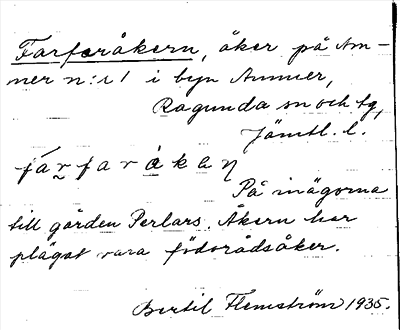 Farforåkern, åker på Am-
mer n:r 1 i byn Ammer,
Ragunda sn och tg,
Jämtl. l.
fárfaråkaṇ
På inägorna
till gården Perlars. Åkern har
plägat vara födorådsåker.
Bertil Flemström 1935.